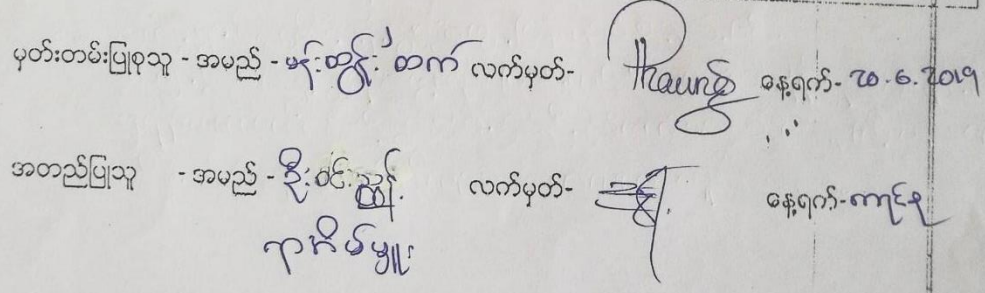 မှတ်းတမ်းပြုစုသူ - အမည် - မန်းထွန်း တက် လက်မှတ်- Thaung နေ့ရက်- 20.6.2019
အတည်ပြုသူ - အမည် - ဦးဝင်းညွန့် လက်မှတ်- နေ့ရက်-
ရာအိမ်မှူး